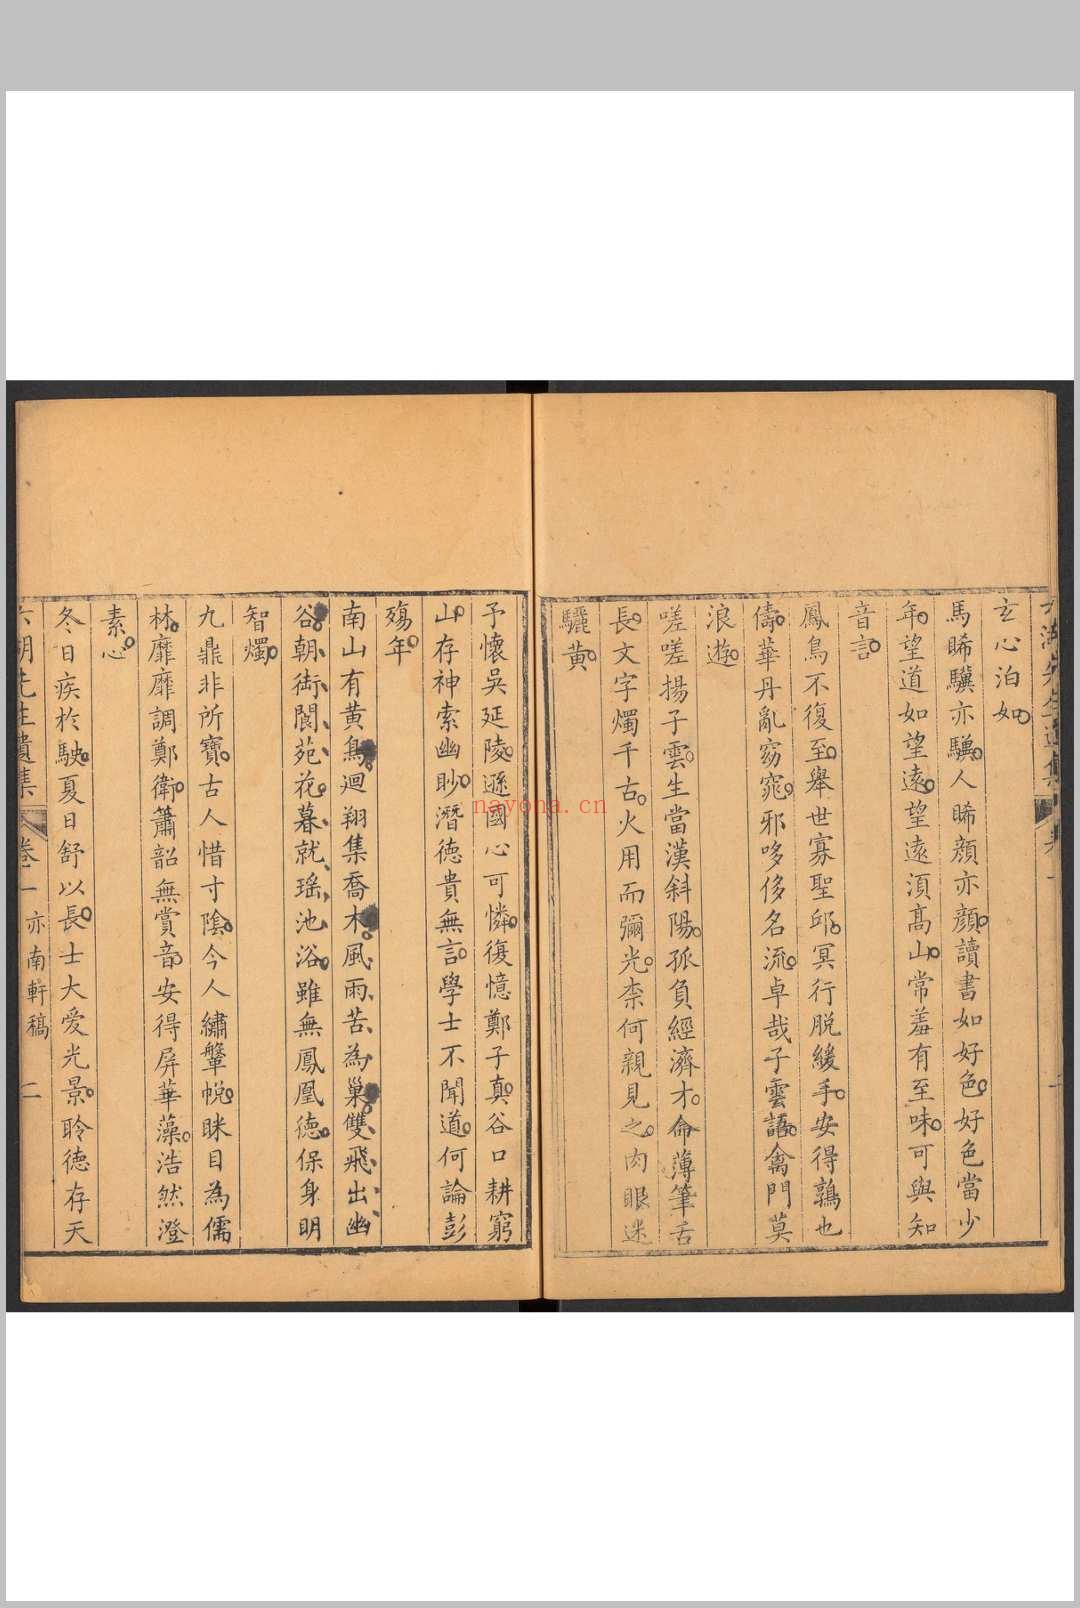 玄心泊如
馬睎驥亦驥人睎顔亦顔讀書如好色好色當少
年望道如望遠望遠須髙山常羞有至味可與知
音言
鳳鳥不復至舉世寡聖邱冥行脱緩手安得鶉也
儔華丹亂窈窕邪哆侈名流卓哉子雲語禽門莫
浪遊
嗟嗟揚子雲生當漢斜陽孤負經濟才侖薄筆舌
長文字燭千古火用而彌光柰何親見之肉眼迷
驪黄
予懷吳延陵遜國心可憐復憶鄭子真谷口耕窮
山存神索幽眇潛徳貴無言學士不聞道何論彭
殤年
南山有黄鳥迴翔集喬木風雨苦為巢雙飛出幽
谷朝銜閬苑花暮就瑶池浴雖無鳳凰徳保身明
智燭
九鼎非所寶古人惜寸陰今人繡鞶帨眯目為儒
林靡靡調鄭衛簫韶無賞音安得屏華藻浩然澄
素心
冬日疾於駛夏日舒以長士大爱光景聆徳存天
六湖先生遺集
卷二
亦南軒稿
二
nayona.cn